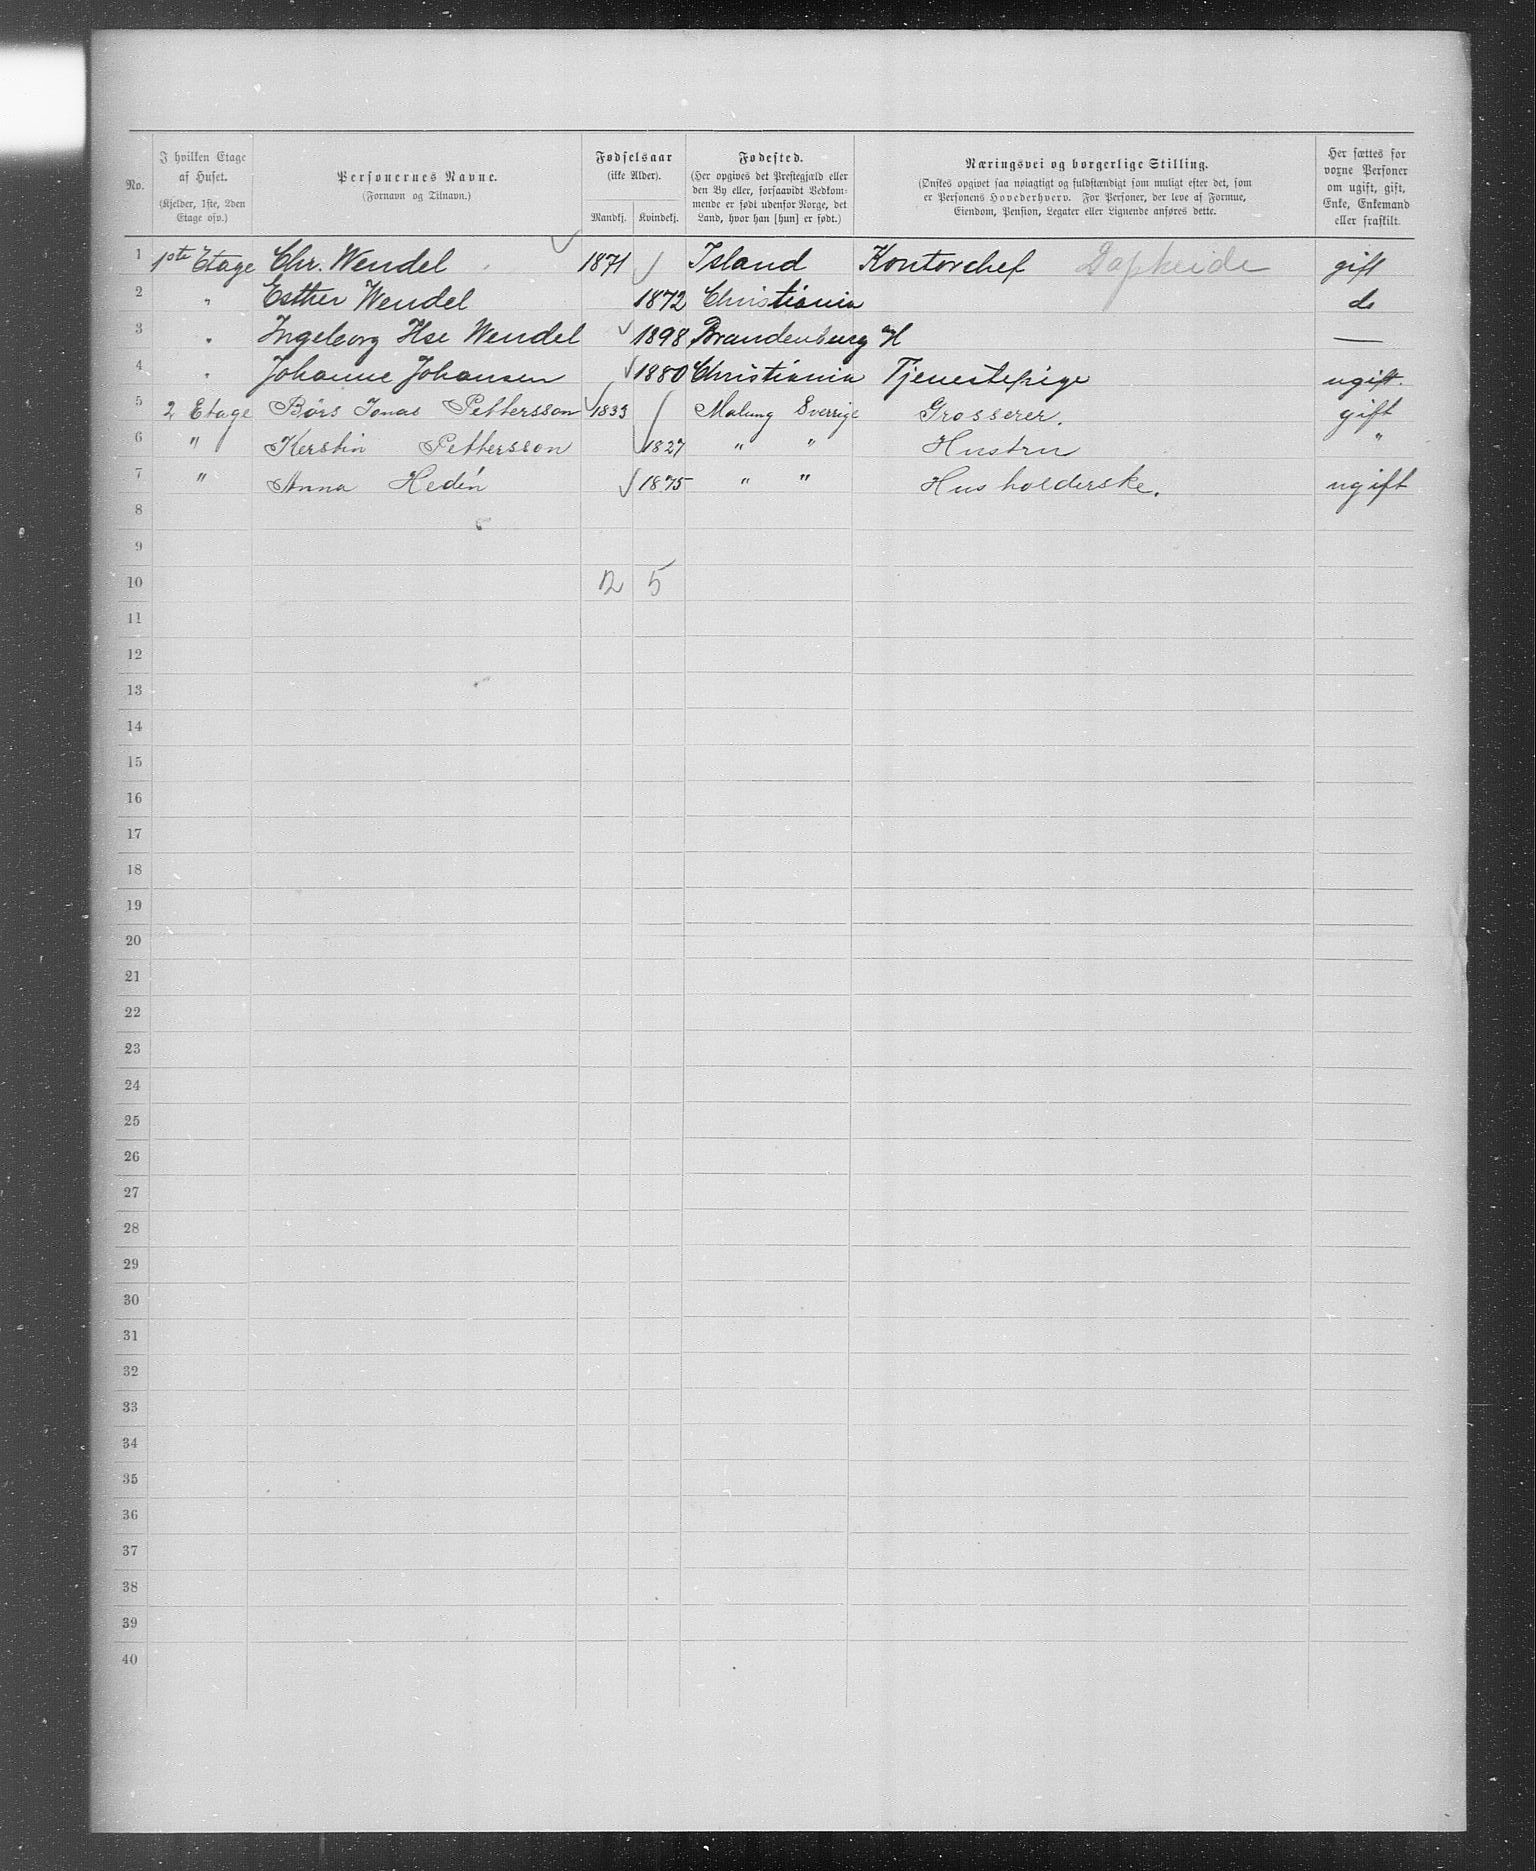 No.
I hvilken Etage af Huset.
(Kjelder, 1ste, 2den Etage osv.)
Personernes Navne.
(Fornavn og Tilnavn.)
Fødselsaar
(ikke Alder).
Mandkj. Kvindekj.
Fødested.
(Her opgives det Prestegjæld eller den By eller, forsaavidt Vedkommende er født udenfor Norge, det Land, hvor han [hun] er født.)
Næringsvei og borgerlige Stilling.
(Ønskes opgivet saa nøiagtigt og fuldstændigt som muligt efter det, som er Personens Hovederhverv. For Personer, der leve af Formue, Eiendom, Pension, Legater eller Lignende anføres dette.
Her sættes for voxne Personer om ugift, gift, Enke, Enkemand eller fraskilt.
1 1ste Etage Chr. Wendel 1871 Island Kontorchef gift
2 " Esther Wendel 1872 Christiania do
3 " Ingeborg Ilse Wendel 1898 Brandenburg a/H —
4 " Johanne Johansen 1880 Christiania Tjenestepige ugift.
5 2 Etage Börs Jonas Pettersson 1833 Malung Sverrige Grosserer. gift
6 " Kerstin Pettersson 1827 " " Hustru "
7 " Anna Hedén 1875 " " Husholderske. ugift
8
9
10 2 5
11
12
13
14
15
16
17
18
19
20
21
22
23
24
25
26
27
28
29
30
31
32
33
34
35
36
37
38
39
40